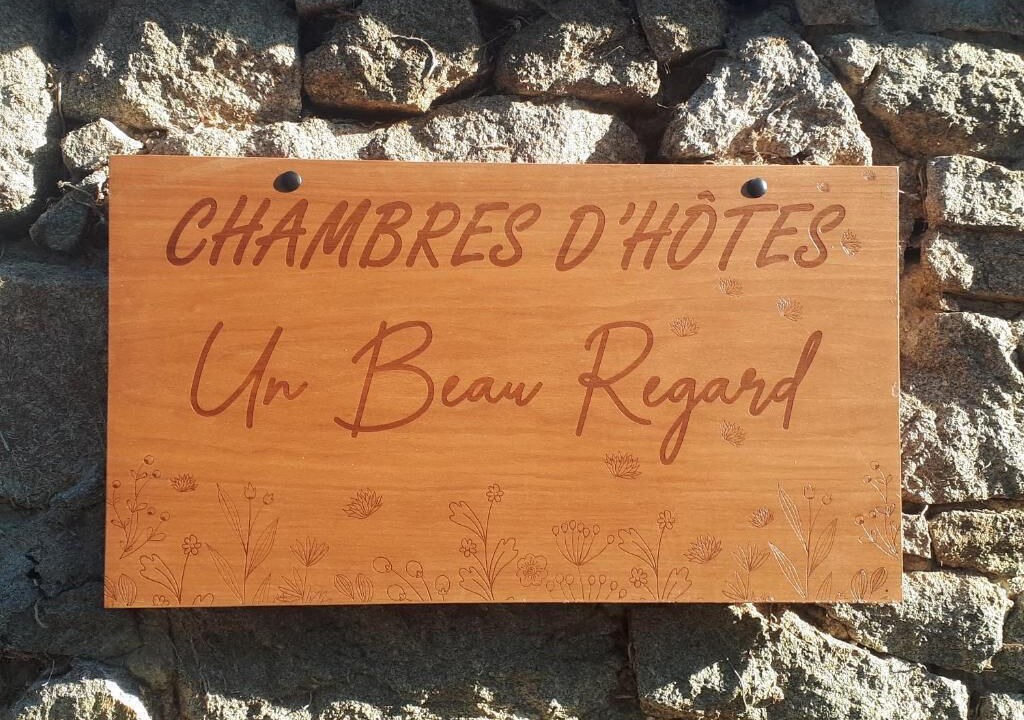 CHAMBRES D'HÔTES
Un Beau Regard